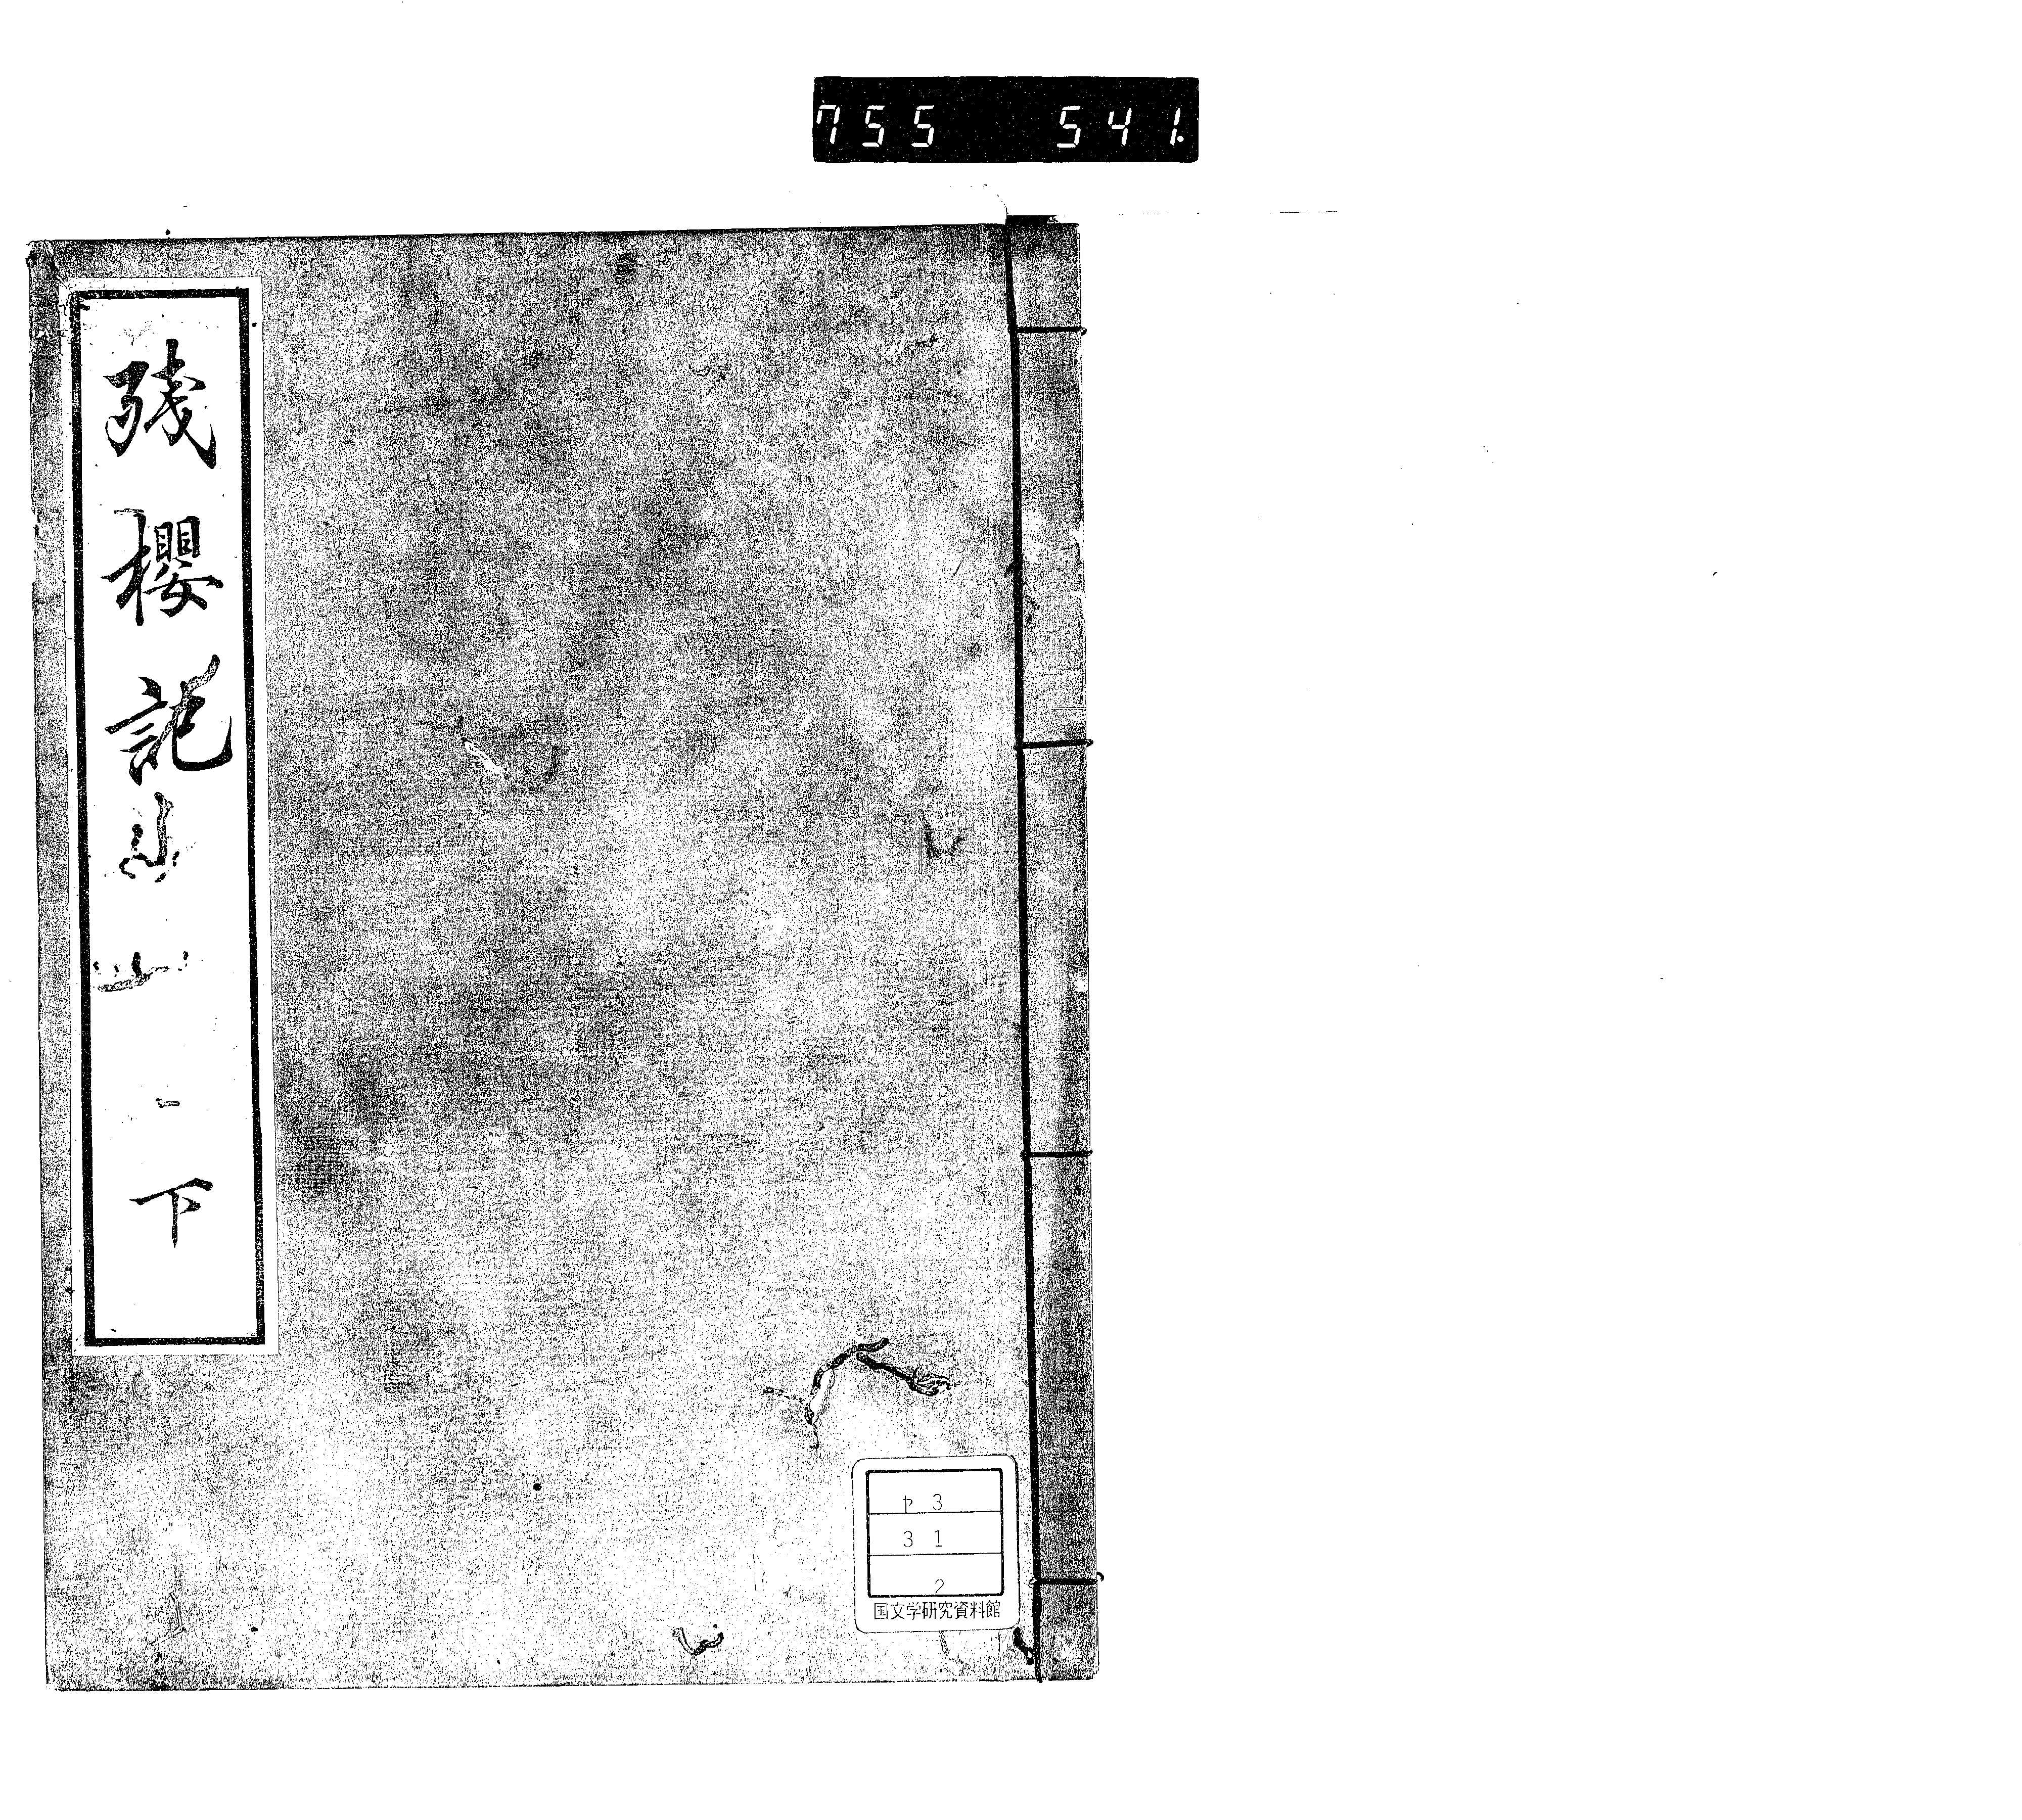 755 541.
残櫻記
下
ヤ3
31
2
国文学研究資料館